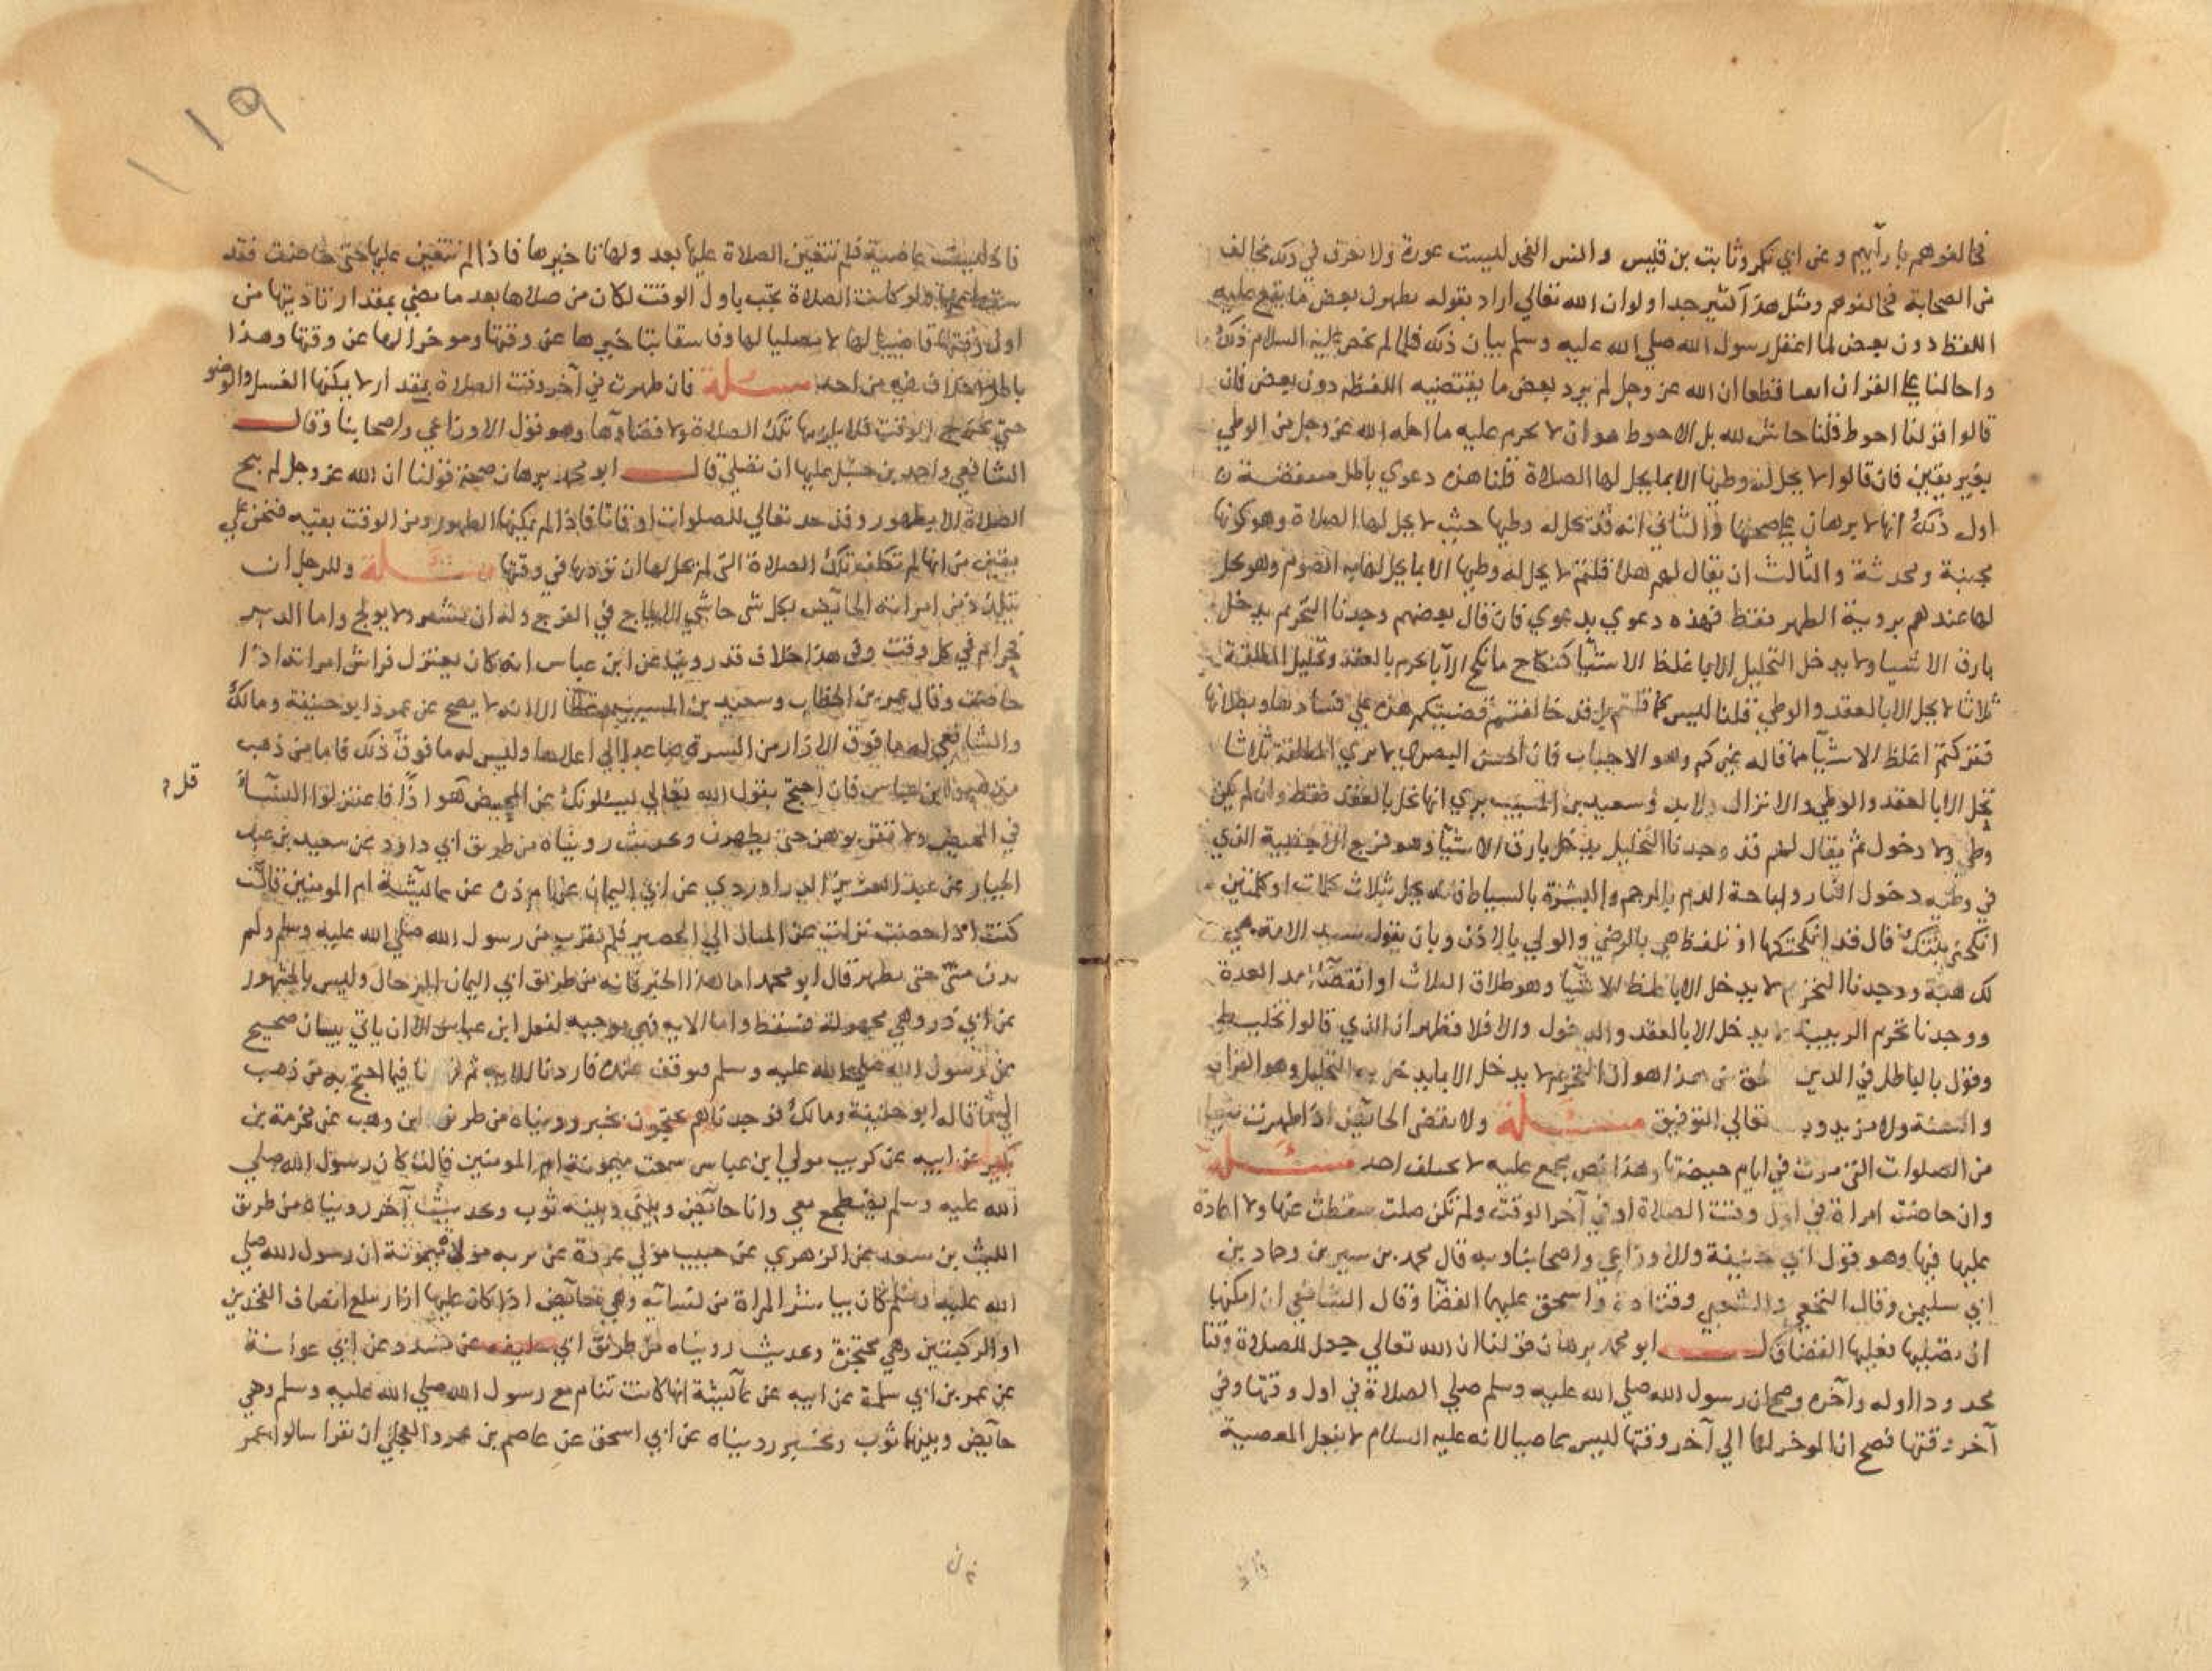 فخالفوهم بارآيهم وعن ابي بكر وثابت بن قيس وانس الفخد ليست عورة ولا نعرف في ذلك مخالف
من الصحابة فخالفوهم ومثل هذا كثير جدا ولو ان الله تعالي اراد بقوله يطهرن بعض ما يقع عليه
اللفظ دون بعض لما اغفل رسول الله صلي الله عليه وسلم بيان ذلك فلما لم يخص عليه السلام ذلك
واحالنا علي القران ايقنا قطعا ان الله عز وجل لم يرد بعض ما يقتضيه اللفظ دون بعض فان
قالوا قولنا احوط قلنا حاش لله بل الاحوط هو ان لا يحرم عليه ما احله الله عز وجل من الوطي
بغير يقين فان قالوا لا يحل له وطيها الا بما يحل لها الصلاة قلنا هذه دعوي باطل منتقضة
اول ذلك انها لا برهان علي صحتها والثاني انه قد يحل له وطيها حيث لا يحل لها الصلاة وهو كونها
مجنبة ومحدثة والثالث ان يقال لهم هلا قلتم لا يحل له وطيها الا بما يحل لها به الصوم وهو يحل
لها عندهم بروية الطهر فقط فهذه دعوي بدعوي فان قال بعضهم وجدنا التحريم يدخل
بارق الاشيا ولا يدخل التحليل الا باغلظ الاشيا كنكاح ما نكح الآبا يحرم بالعقد وتحليل المطلقة
ثلاثا لا يحل الا بالعقد والوطي قلنا ليس كما قلتم بل قد خالفتم قضيتكم هذه علي فسادها وبطلانها
فتركتم اغلظ الاشيآ مما قاله غيركم وهو الاجناب فان الحسن البصري لا يري المطلقة ثلاثا
تحل الا بالعقد والوطي والانزال ولا بد وسعيد بن المسيب يري انها تحل بالعقد فقط وان لم يكن
وطي ولا دخول ثم يقال لهم قد وجدنا التحليل يدخل بارق الاشيآ وهو فرج الاجنبية الذي
في وطئه دخول النار واباحة الدم بالرجم والبشرة بالسياط فانه يحل بثلاث كلمات او كلمتين
انكحني بنتك قال قد انكحتكها او بلفظ هي بالرضي والولي بالاذن وبان يقول سيد الامة هي
لك هبة ووجدنا التحريم لا يدخل الا باغلظ الاشيآ وهو طلاق الثلاث او انقضآ امد العدة
ووجدنا تحريم الربيبة لا يدخل الا بالعقد والدخول والا فلا فظهر ان الذي قالوا تخليط
وقول بالباطل في الدين هو ان التحريم لا يدخل الا بما يدخل به التحليل وهو القران
والسنة ولا مزيد تعالي التوفيق مسئلة ولا تقضي الحائض اذا طهرت شيا
من الصلوات التي مرت في ايام حيضتها وهذا نص مجمع عليه لا يختلف احد مسئلة
وان حاضت امراة في اول وقت الصلاة او في آخر الوقت ولم تكن صلت سقطت عنها ولا اعادة
عليها فيها وهو قول ابي حنيفة والاوزاعي واصحابنا وبه قال محمد بن سيرين وحماد بن
ابي سليمن وقال النخعي والشعبي وقتادة واسحق عليها القضآ وقال الشافعي ان امكنها
ان تصليها فعليها القضا قال ابو محمد برهان قولنا ان الله تعالي جعل للصلاة وقتا
محدودا اوله وآخره وصح ان رسول الله صلي الله عليه وسلم صلي الصلاة في اول وقتها وفي
آخر وقتها فصح ان الموخر لها الي آخر وقتها ليس عاصيا لانه عليه السلام لا يفعل المعصية
١١٩
فاذ ليست عاصية فلم تتعين الصلاة عليها بعد ولها تاخيرها فاذا لم تتعين عليها حتى حاضت فقد
سقطت عنها ولو كانت الصلاة تجب باول الوقت لكان من صلاها بعد ما مضي بمقدار تاديتها من
اول وقتها قاضيا لها لا مصليا لها وفاسقا بتاخيرها عن وقتها وموخرا لها عن وقتها وهذا
باطل لا اختلاف فيه من احد مسئلة فان طهرت في آخر وقت الصلاة بمقدار لا يمكنها الغسل والوضو
حتي يخرج الوقت فلا يلزمها تلك الصلاة ولا قضاوها وهو قول الاوزاعي واصحابنا وقال
الشافعي واحمد بن حنبل عليها ان تصلي قال ابو محمد برهان صحة قولنا ان الله عز وجل لم يبح
الصلاة الا بطهور وقد حد تعالي للصلوات اوقاتا فاذا لم يمكنها الطهور ومن الوقت بقيه فنحن علي
يقين من انها لم تكلف تلك الصلاة التي لم يحل لها ان تؤديها في وقتها مسئلة وللرجل ان
يتلذذ من امراته الحائض بكل شي حاشي الايلاج في الفرج وله ان يشفر ولا يولج واما الدبر
فحرام في كل وقت وفي هذا خلاف قد روينا عن ابن عباس انه كان يعتزل فراش امراته اذا
حاضت وقال عمر بن الخطاب وسعيد بن المسيب وعطا الا انه لا يصح عن عمر وابو حنيفة ومالك
والشافعي له ما فوق الازار من السرة صاعدا الي اعلاها وليس له ما دون ذلك فاما من ذهب
مذهب ابن عباس فان احتج بقول الله تعالي يسئلونك عن المحيض قل هو اذًا فاعتزلوا النسآ
في المحيض ولا تقربوهن حتى يطهرن وبحديث رويناه من طريق ابي داود عن سعيد بن عبد
الجبار عن عبد العزيز الدراوردي عن ابي اليمان عن ام ذرة عن عائيشة ام المومنين قالت
كنت اذا حضت نزلت عن المثال الي الحصير فلم نقرب من رسول الله صلي الله عليه وسلم ولم
ندن منه حتى نطهر قال ابو محمد اما هذا الخبر فانه من طريق ابي اليمان الرحال وليس بالمشهور
عن ام ذرة وهي مجهولة فسقط واما الايه فهي موجبه لفعل ابن عباس الا ان ياتي بيان صحيح
عن رسول الله صلي الله عليه وسلم فيوقف عنده فاردنا للايه ثم نظرنا فيما احتج به من ذهب
الي ما قاله ابو حنيفة ومالك فوجدناهم يحتجون بخبر رويناه من طريق ابن وهب عن مخرمة بن
بكير عن ابيه عن كريب مولي ابن عباس سمعت ميمونة ام المومنين قالت كان رسول الله صلي
الله عليه وسلم يضطجع معي وانا حائض وبيني وبينه ثوب وبحديث آخر رويناه من طريق
الليث بن سعد عن الزهري عن حبيب مولي عروة عن ندبه مولاة ميمونة ان رسول الله صلي
الله عليه وسلم كان يباشر المراة من نسائه وهي حائض اذا كان عليها ازار يبلغ انصاف الفخذين
او الركبتين وهي محتجزة وبحديث رويناه من طريق ابي خليفه عن مسدد عن ابي عوانة
عن عمر بن ابي سلمة عن ابيه عن عائيشة انها كانت تنام مع رسول الله صلي الله عليه وسلم وهي
حائض وبينهما ثوب وبخبر رويناه عن ابي اسحق عن عاصم بن عمرو البجلي ان نفرا سالوا عمر
قل